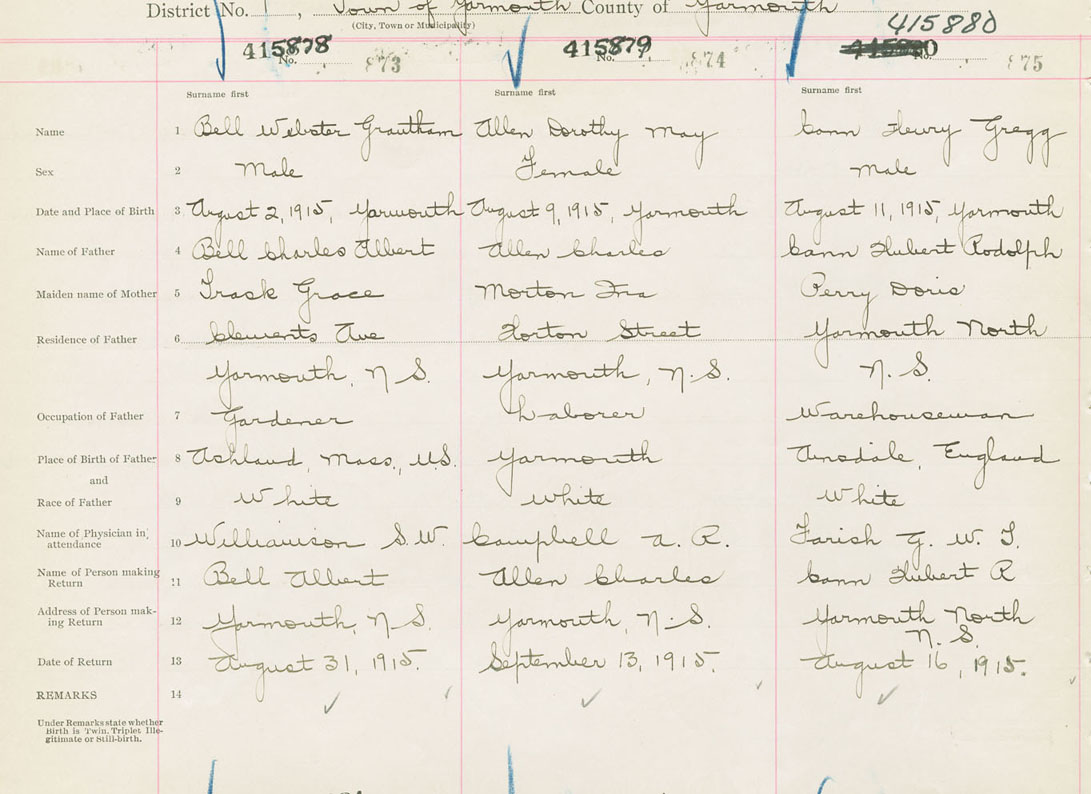 District No. 1, Town of Yarmouth County of Yarmouth
(City, Town or Municipality)
415880
415878 415879
No. 873 No. 874 No. 875
Surname first Surname first Surname first
Name 1 Bell Webster Grantham Allen Dorothy May Cann Henry Gregg
Sex 2 Male Female Male
Date and Place of Birth 3 August 2, 1915, Yarmouth August 9, 1915, Yarmouth August 11, 1915, Yarmouth
Name of Father 4 Bell Charles Albert Allen Charles Cann Hubert Rodolph
Maiden name of Mother 5 Trask Grace Morton Ina Perry Doris
Residence of Father 6 Clements Ave Horton Street Yarmouth North
Yarmouth, N S. Yarmouth, N. S. N. S.
Occupation of Father 7 Gardener Laborer Warehouseman
Place of Birth of Father 8 Ashland, Mass., U.S. Yarmouth Ainsdale, England
and
Race of Father 9 White White White
Name of Physician in attendance 10 Williamson S. W. Campbell A. R. Farish G. W. T.
Name of Person making Return 11 Bell Albert Allen Charles Cann Hubert R
Address of Person making Return 12 Yarmouth, N S. Yarmouth, N. S. Yarmouth North
N. S.
Date of Return 13 August 31, 1915. September 13, 1915. August 16, 1915.
REMARKS 14
Under Remarks state whether
Birth is Twin, Triplet Ille-
gitimate or Still-birth.